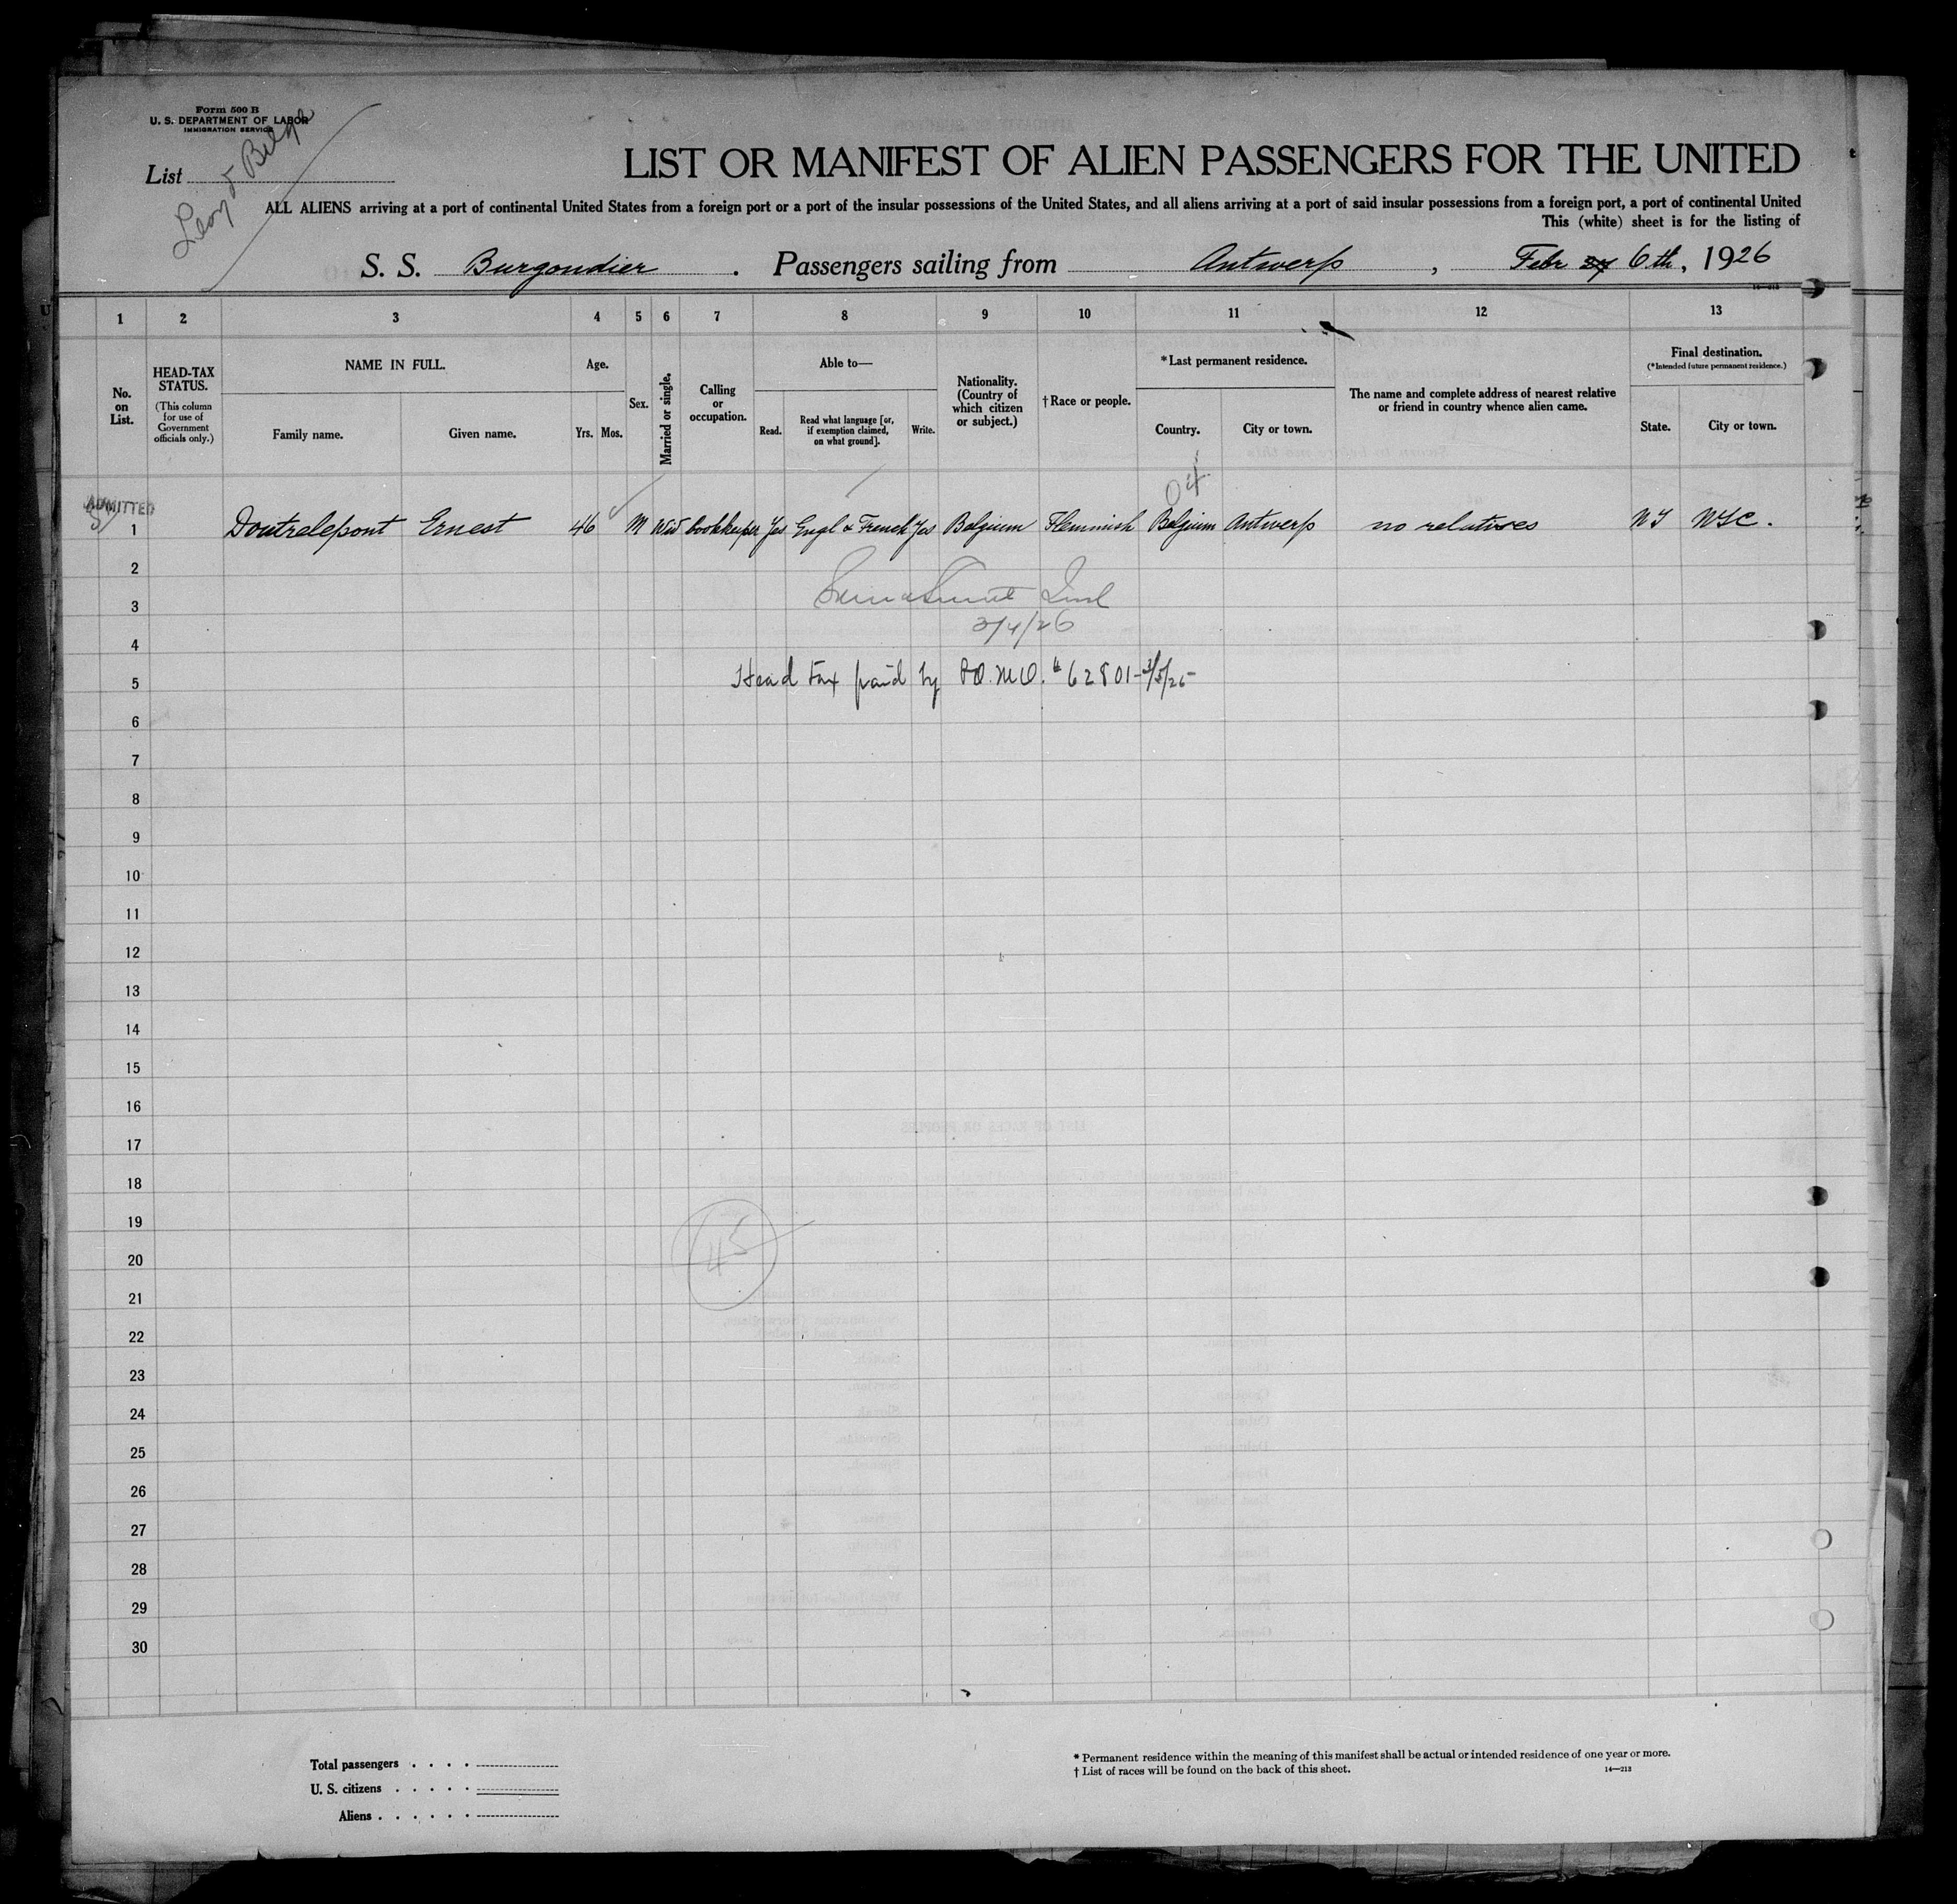 Form 500 B
U. S. DEPARTMENT OF LABOR
IMMIGRATION SERVICE
List
LIST OR MANIFEST OF ALIEN PASSENGERS FOR THE UNITED
ALL ALIENS arriving at a port of continental United States from a foreign port or a port of the insular possessions of the United States, and all aliens arriving at a port of said insular possessions from a foreign port, a port of continental United
This (white) sheet is for the listing of
S. S. Burgondier. Passengers sailing from Antwerp, Febr 6th, 1926
14—213
1 2 3 4 5 6 7 8 9 10 11 12 13
No. on List.
HEAD-TAX STATUS.
(This column for use of Government officials only.)
NAME IN FULL.
Family name. Given name.
Age.
Yrs. Mos.
Sex.
Married or single.
Calling or occupation.
Able to—
Read. Read what language [or, if exemption claimed, on what ground]. Write.
Nationality. (Country of which citizen or subject.)
†Race or people.
*Last permanent residence.
Country. City or town.
The name and complete address of nearest relative or friend in country whence alien came.
Final destination.
(*Intended future permanent residence.)
State. City or town.
ADMITTED
1 Doutrelepont Ernest 46 M Wid bookkeeper Yes Engl & French Yes Belgium Flemmish Belgium Antwerp no relatives NY NYC.
2
3
3/4/26
4
5 Head tax paid by P.O. M.O. # 62801-
6
7
8
9
10
11
12
13
14
15
16
17
18
19
45
20
21
22
23
24
25
26
27
28
29
30
Total passengers . . . .
U. S. citizens . . . . .
Aliens . . . . . .
* Permanent residence within the meaning of this manifest shall be actual or intended residence of one year or more.
† List of races will be found on the back of this sheet.
14—213